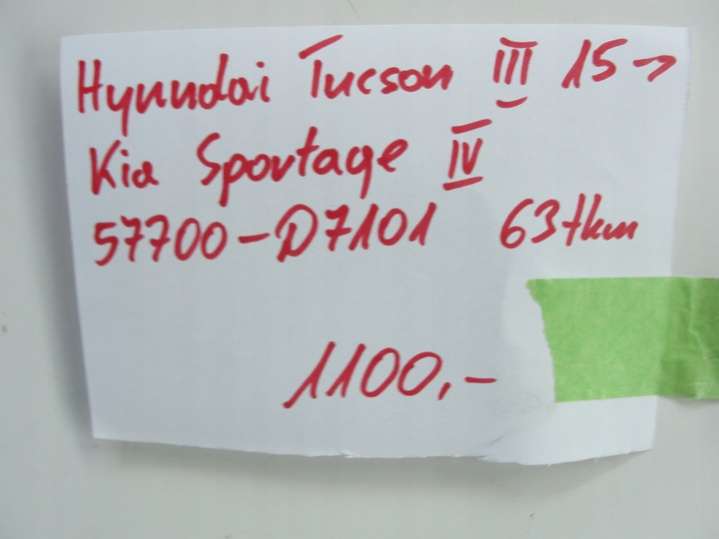 Hyundai Tucson III 15→
Kia Sportage IV
57700-D7101 63tkm
1100,-